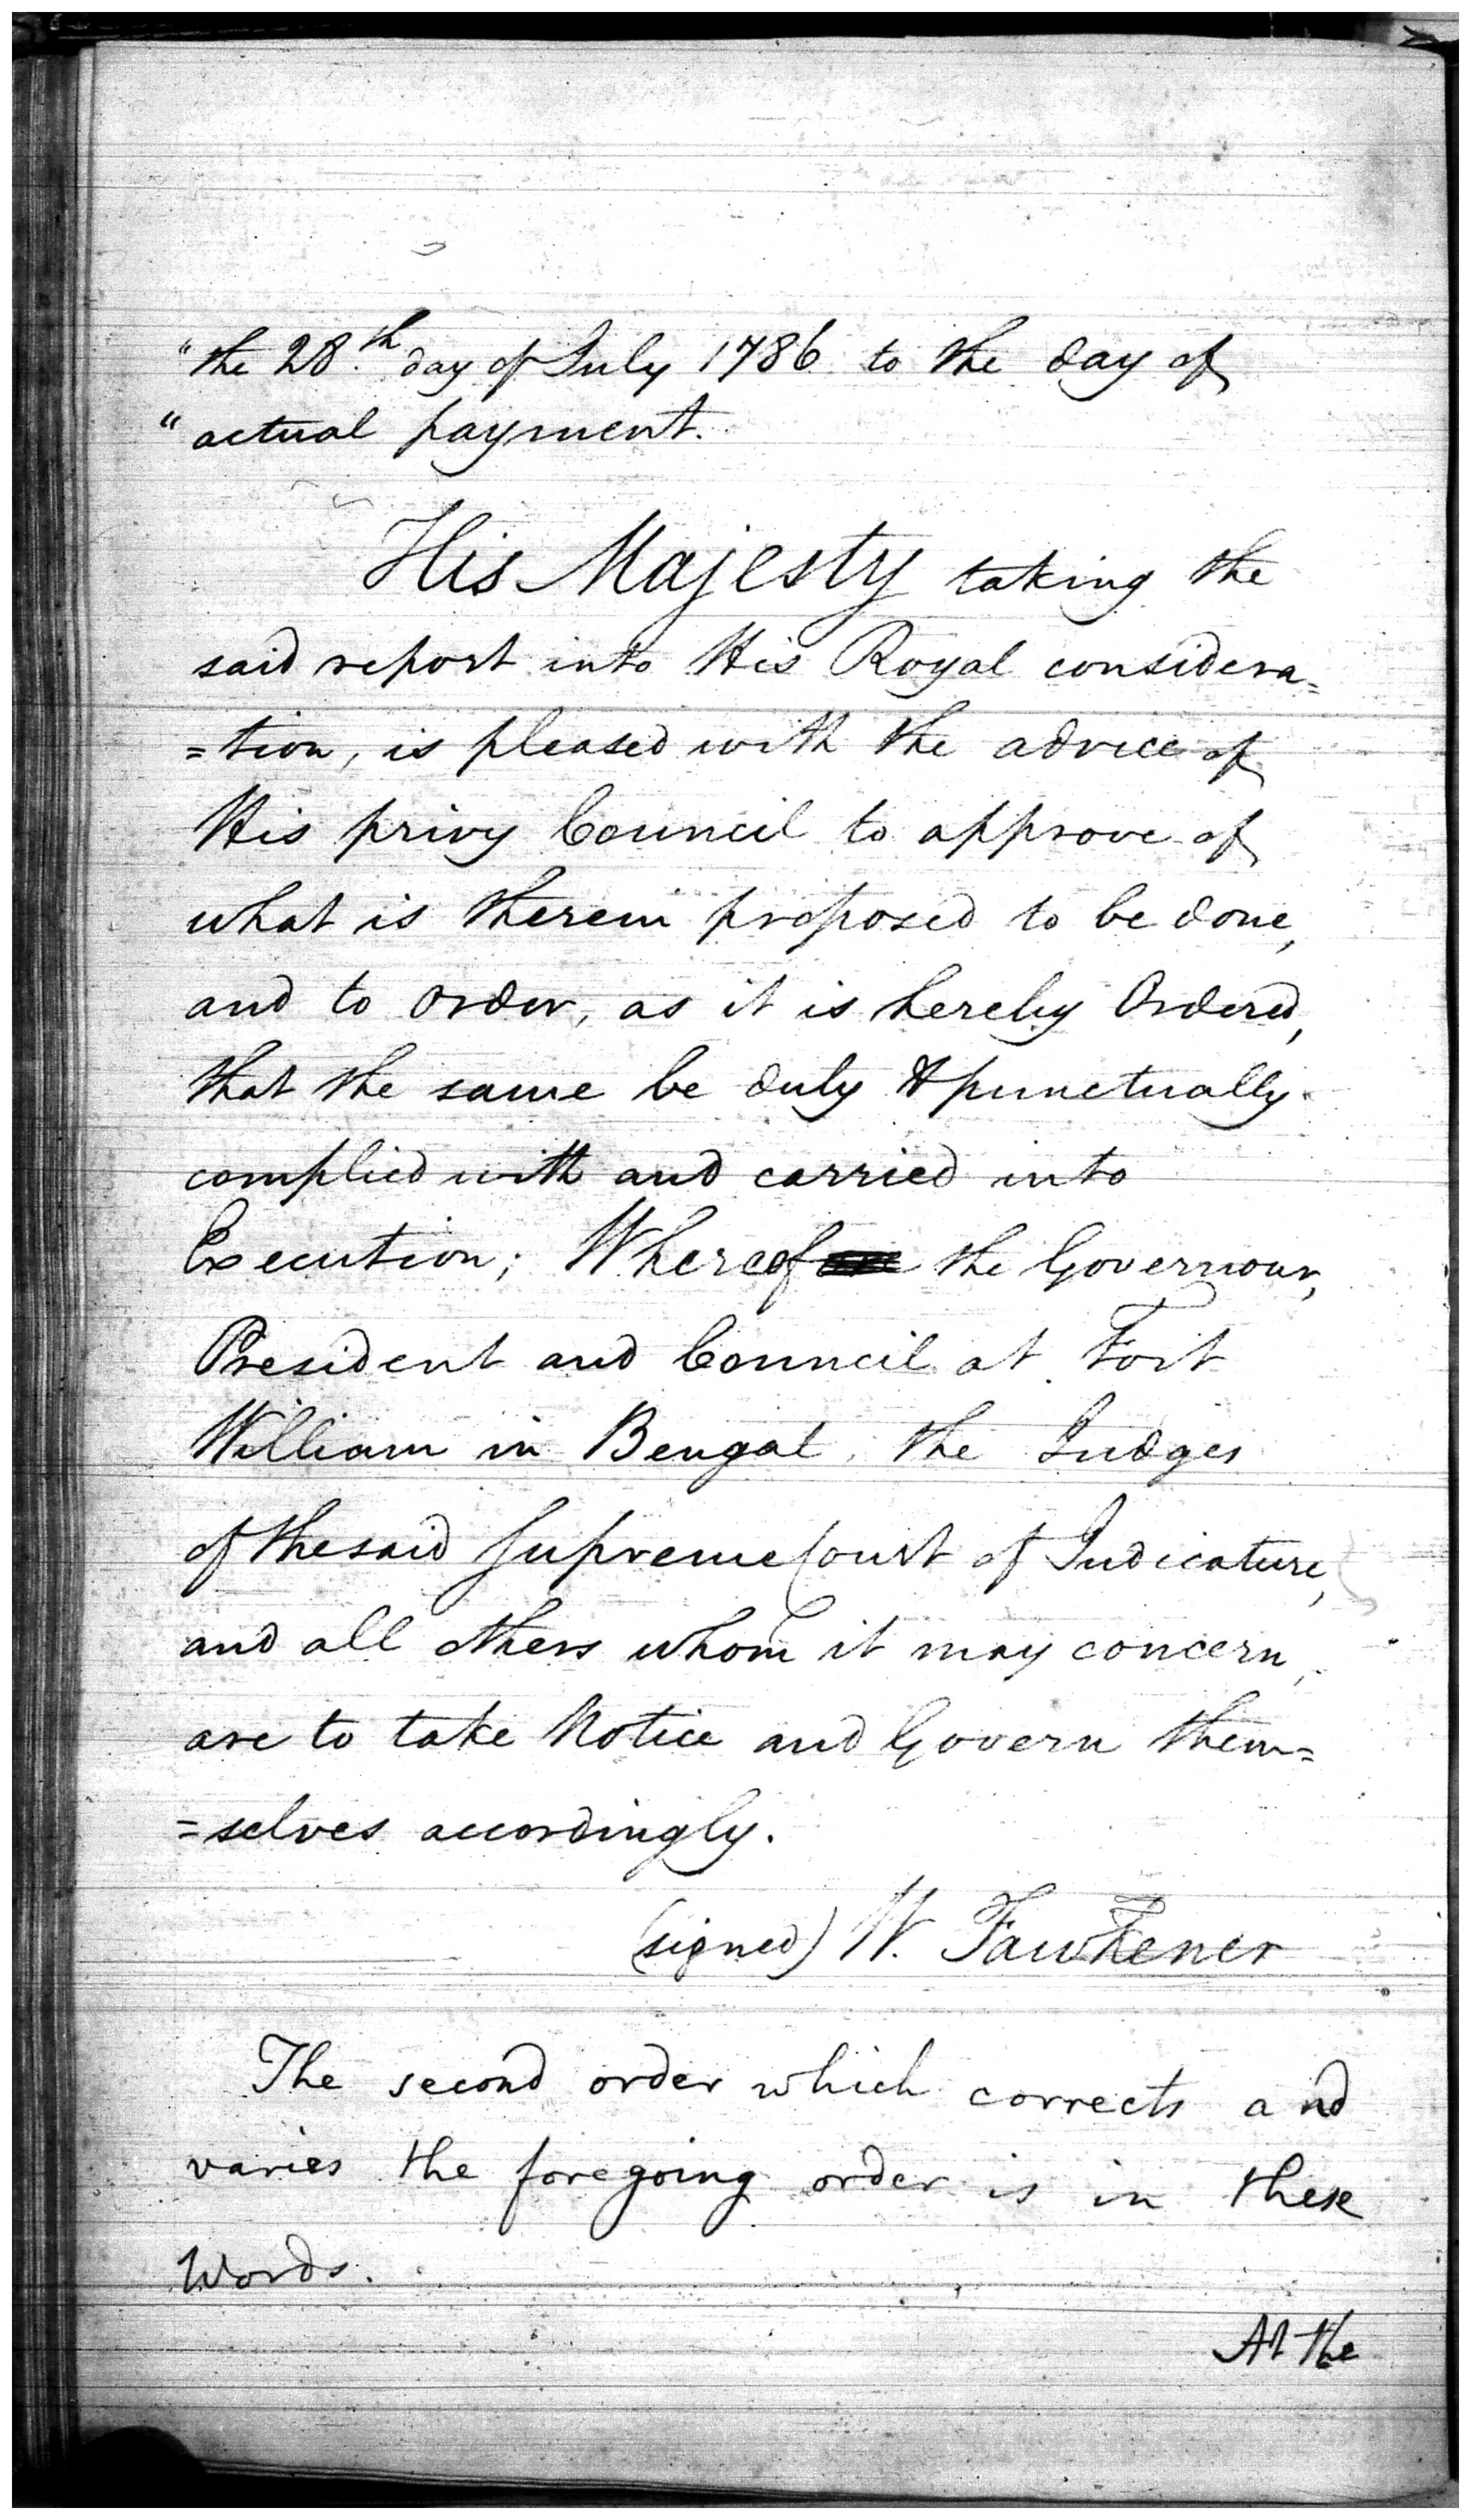 "the 28.th day of July 1786 to the day of
"actual payment.
His Majesty taking the
said report into His Royal considera=
=tion, is pleased with the advice of
His privy Council to approve of
what is therein proposed to be done,
and to order, as it is hereby Ordered,
that the same be duly & punctually
complied with and carried into
Execution; Whereof the Governour,
President and Council at Fort
William in Bengal, the Judges
of the said Supreme Court of Judicature,
and all others whom it may concern,
are to take Notice and Govern them=
=selves accordingly.
(signed) W. Fawkener
The second order which corrects and
varies the foregoing order is in these
Words.
At the